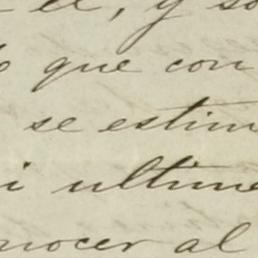 el, y so
que con
se estim
i ultim
nocer al